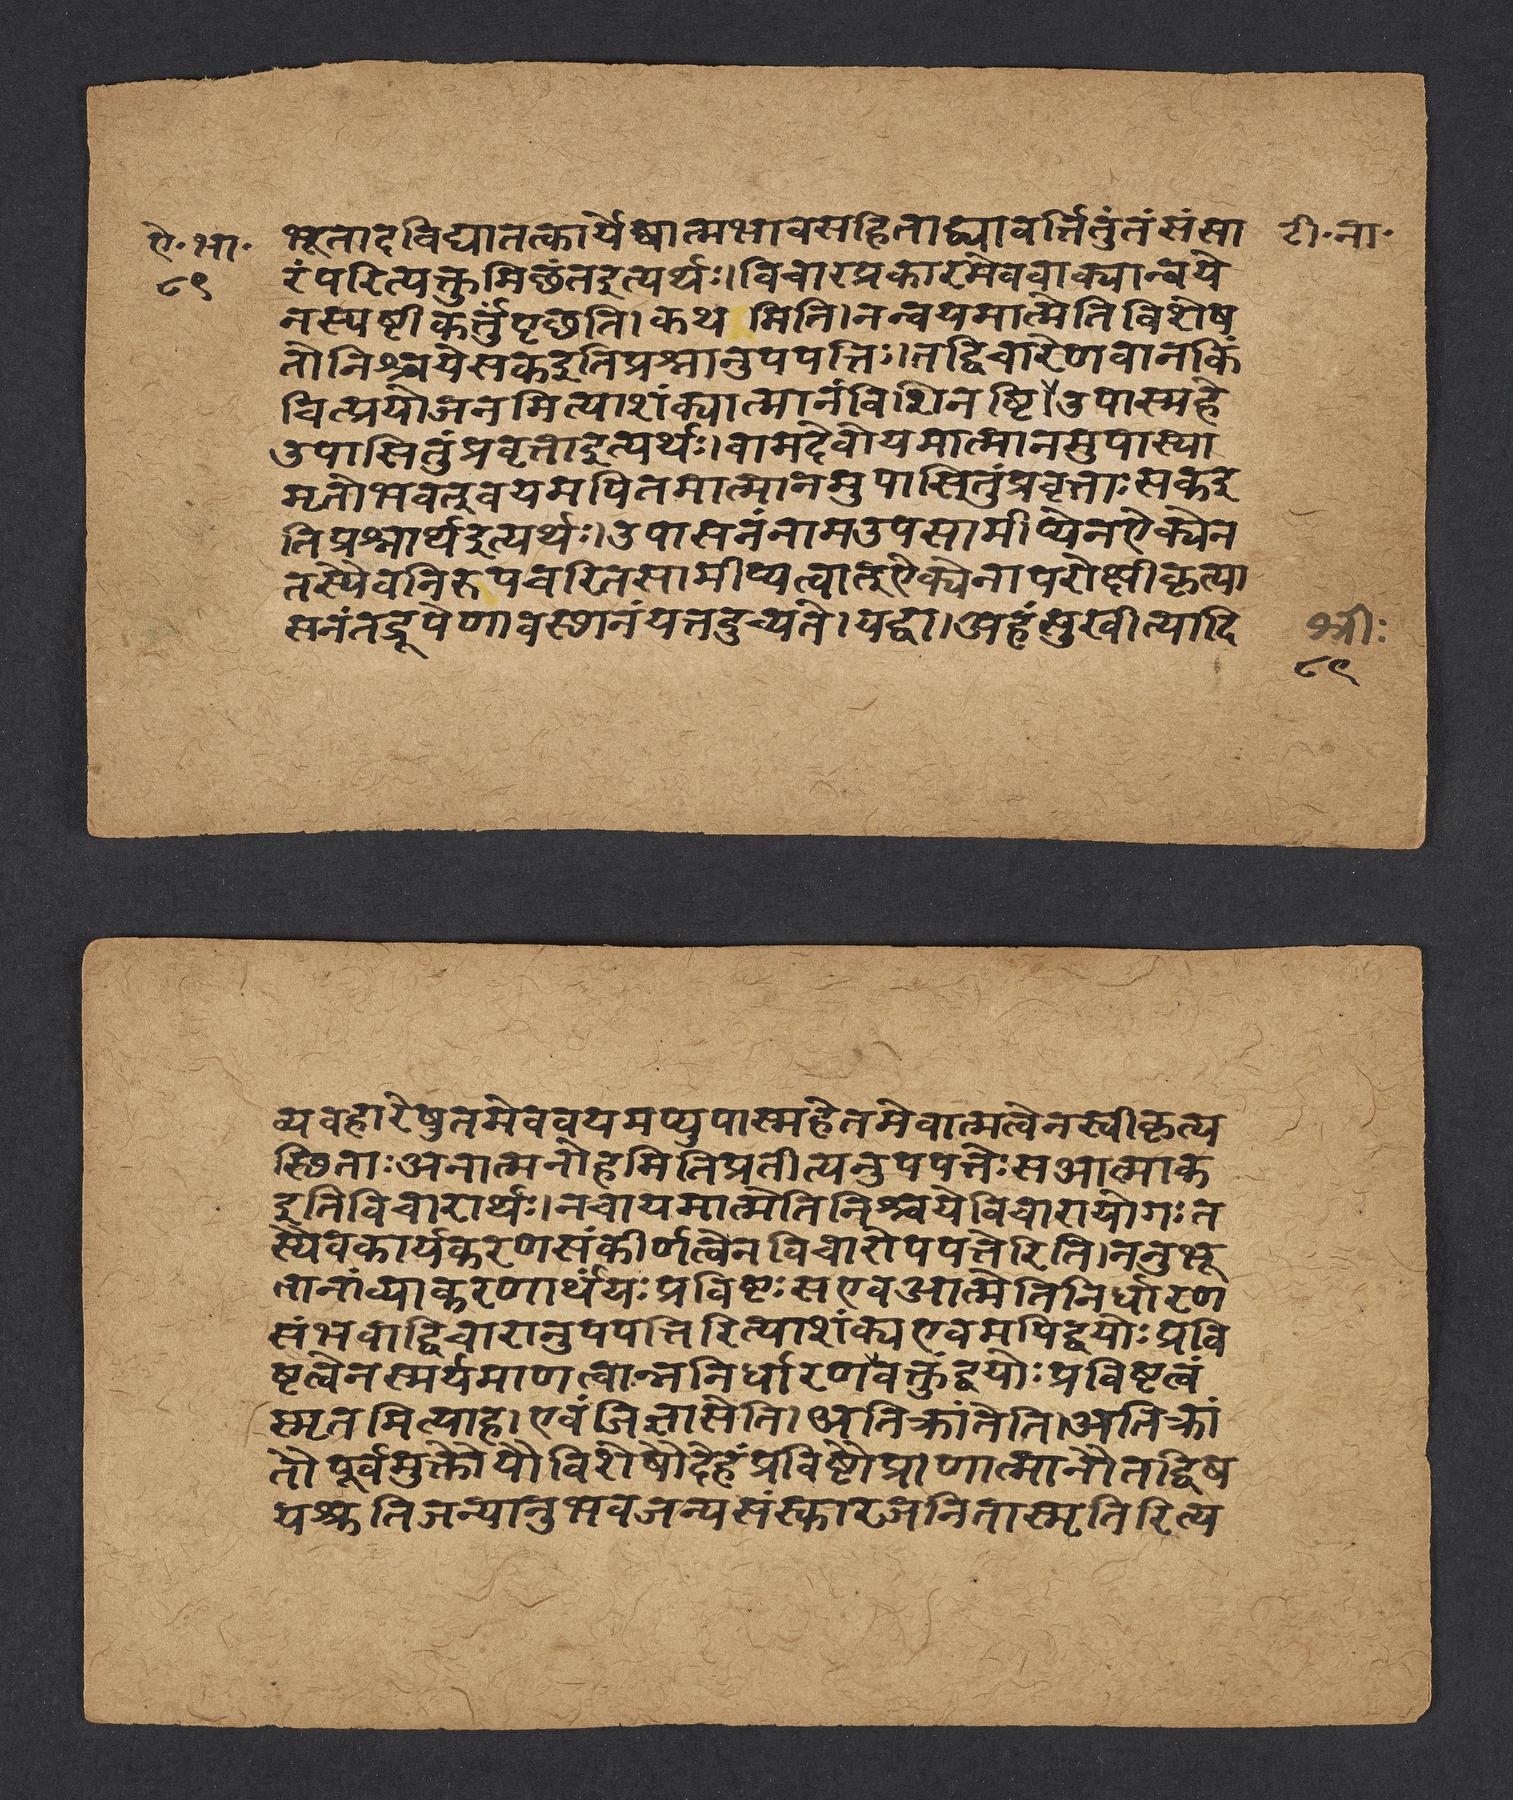 ऐ.भा. भूतादविद्यातत्कार्येष्वात्मभावसहिताद्व्यावर्त्तितुंतंसंसा टी.ना.
८९ रंपरित्यक्तुमिछंतइत्यर्थः।विचारप्रकारमेववाक्यान्वये
नस्पष्टीकर्त्तुंपृछति।कथ मिति।नन्वयमात्मेतिविशेष
तोनिश्चयेसकइतिप्रश्नानुपपत्तिः।तद्विचारेणवानकिं
चित्प्रयोजनमित्याशंक्यात्मानंविशिनष्टि।उपास्महे
उपासितुंप्रवृत्ताइत्यर्थः।वामदेवोयमात्मानमुपास्या
मृतोभवत्तुवयमपितमात्मानमुपासितुंप्रवृत्ताःसकइ
तिप्रश्नार्थइत्यर्थः।उपासनंनामउपसामीप्येनऐक्येन
तस्यैवनिरुपचरितसामीप्यत्वात्ऐक्येनापरोक्षीकृत्या
सनंतद्रूपेणावस्थानंयत्तदुच्यते।यद्वा।अहंसुखीत्यादि श्रीः
८९
व्यवहारेषुतमेववयमप्युपास्महेतमेवात्मत्वेनस्वीकृत्य
स्थिताःअनात्मनोहमितिप्रतीत्यनुपपत्तेःसआत्माक
इतिविचारार्थः।नचायमात्मेतिनिश्चयेविचारायोगःत
स्यैवकार्यकरणसंकीर्णत्वेनविचारोपपत्तेरिति।ननुभू
तानांव्याकरणार्थंयःप्रविष्टःसएवआत्मेतिनिर्धारण
संभवाद्विचारानुपपत्तिरित्याशंक्यएवमपिद्वयोःप्रवि
ष्टत्वेनस्मर्यमाणत्वान्ननिर्धारणवक्तुंद्वयोःप्रविष्टत्वं
स्मृतमित्याह।एवंजिज्ञासेति।अतिक्रांतेति।अतिक्रां
तौपूर्वमुक्तौयौविशेषौदेहंप्रविष्टौप्राणात्मानौतद्विष
यश्रुतिजन्यानुभवजन्यसंस्कारजनितास्मृतिरित्य